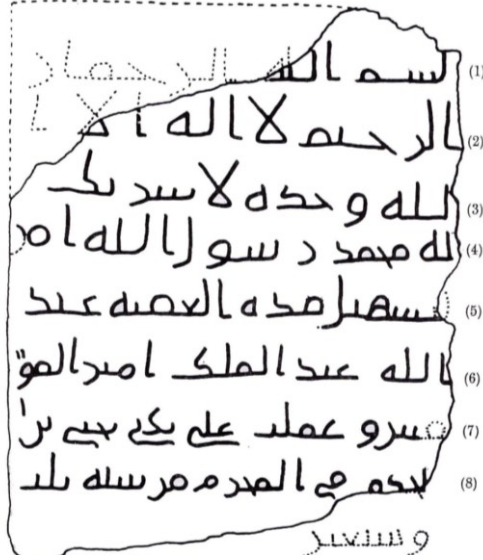 بسم الله الرحمن (1)
الرحيم لا اله الا ا (2)
لله وحده لا شريك (3)
له محمد رسول الله امر (4)
بتسهيل هذه العقبه عبد (5)
الله عبد الملك امير المؤ (6)
منين وعملت على يدي يحيى بن (7)
الحكم في المحرم من سنه ثلث (8)
وسبعين